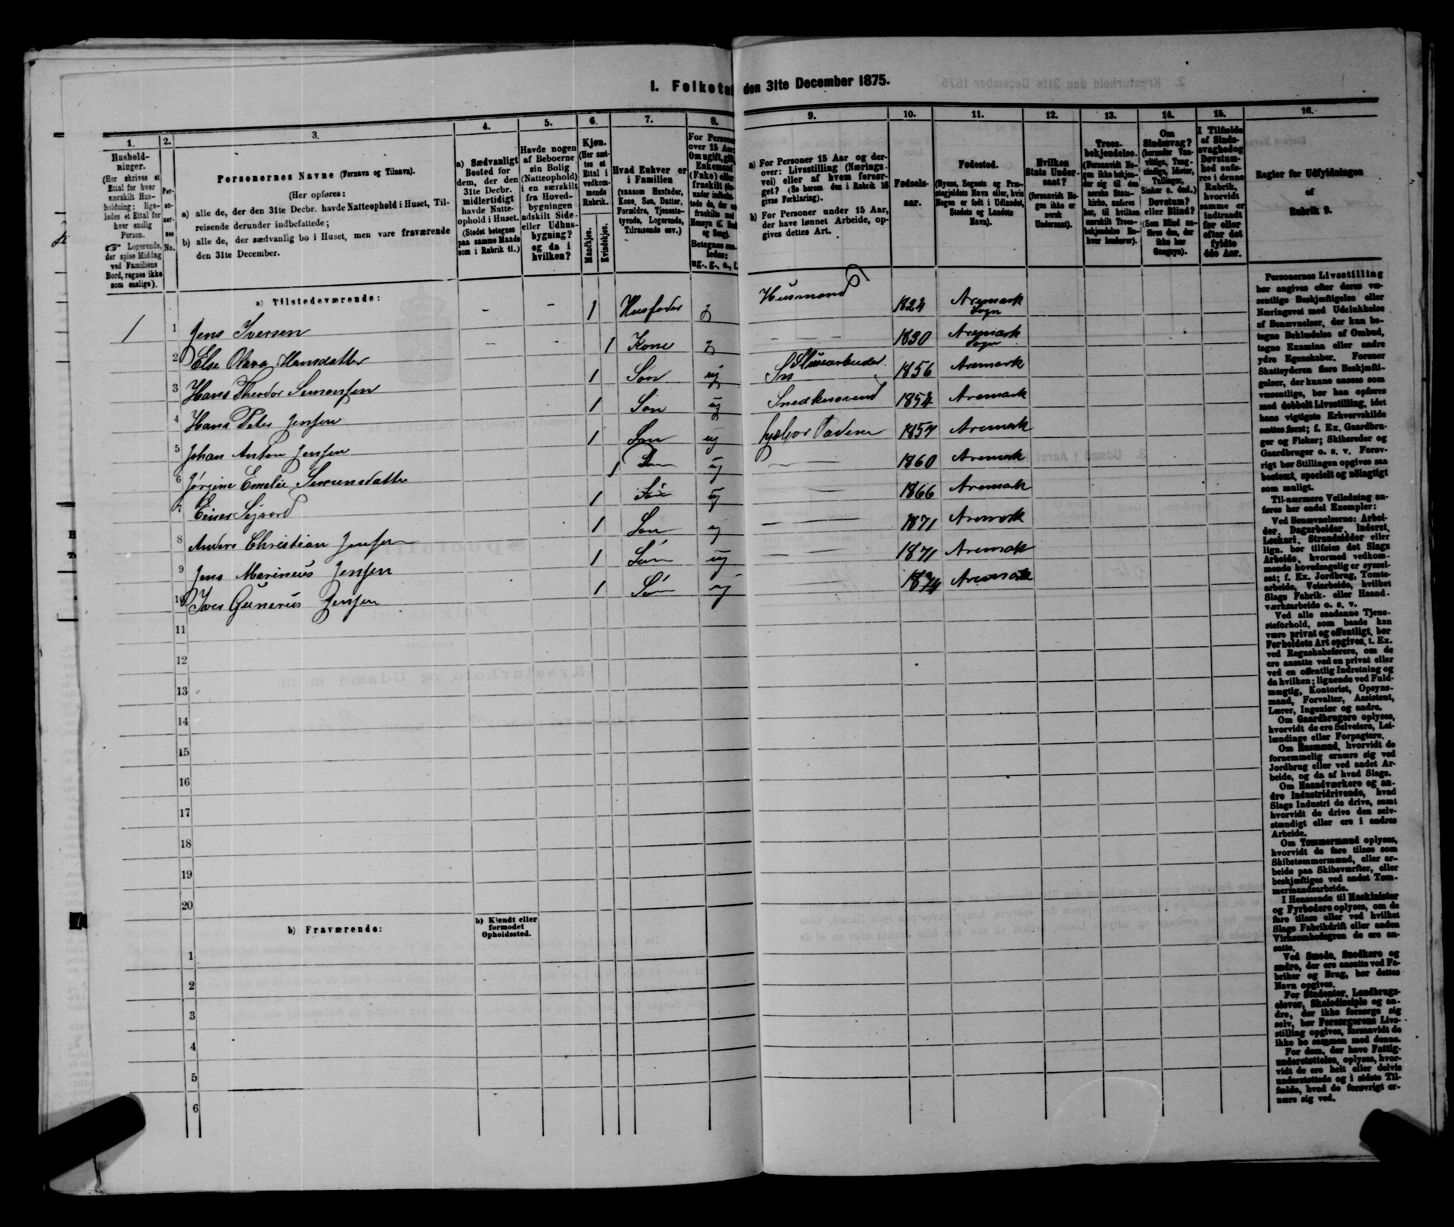 1. Folketæ den 31te December 1875.
1. 2. 3. 4. 5. 6. 7. 8. 9. 10. 11. 12. 13. 14. 15. 16.
Hushold-
ninger.
(Her skrives et
Ettal for hver
særskilt Hus-
holdning; lige-
ledes et Ettal for
hver enslig
Person.
☞ Logerende,
der spise Middag
ved Familiens
Bord, regnes ikke
som enslige).
Per-
so-
ner-
nes
No.
Personernes Navne (Fornavn og Tilnavn).
(Her opføres:
a) alle de, der den 31te Decbr. havde Natteophold i Huset, Til-
reisende derunder indbefattede;
b) alle de, der sædvanlig bo i Huset, men vare fraværende
den 31te December.
a) Sædvanligt
Bosted for
dem, der den
31te Decbr.
midlertidigt
havde Natte-
ophold i Huset.
(Stedet betegnes
paa samme Maade
som i Rubrik 11.)
Havde nogen
af Beboerne
sin Bolig
(Natteophold)
i en særskilt
fra Hoved-
bygningen
adskilt Side-
eller Udhus-
bygning?
og da i
hvilken?
Kjøn.
(Her sæt-
tes et
Ettal i
vedkom-
mende
Rubrik.
Mandkjøn.
Kvindekjøn.
Hvad Enhver er
i Familien
(saasom Husfader,
Kone, Søn, Datter,
Forældre, Tjeneste-
tyende, Logerende,
Tilreisende osv.)
For Persone
over 15 Aar
Om ugift, gift,
Enkemand
(Enke) eller
fraskilt
Betegnes saa-
ledes:
ug., g., e., f.
a) For Personer 15 Aar og der-
over: Livsstilling (Nærings-
vei) eller af hvem forsør-
get? (Se herom den i Rubrik 16
givne Forklaring).
b) For Personer under 15 Aar,
der have lønnet Arbeide, op-
gives dettes Art.
Fødsels-
aar.
Fødested.
(Byens, Sognets og Præ-
stegjeldets Navn eller, hvis
Nogen er født i Udlandet,
Stedets og Landets
Navn).
Hvilken
Stats Under-
saat?
(forsaavidt No-
gen ikke er
norsk
Undersaat).
Troes-
bekjendelse.
(Forsaavidt No-
gen ikke beken-
der sig til den
norske Stats-
kirke, anføres
her, til hvilken
særskilt Troes-
bekjendelse En-
hver henhører).
Om
Sindssvag?
Døvstum?
eller Blind?
(Som Blind an-
føres den, der
ikke har
Gangsyn).
I Tilfælde
af Sinds-
svaghed og
Døvstum-
hed anfø-
res i denne
Rubrik,
hvorvidt
samme er
indtraadt
før eller
efter det
fyldte
4de Aar.
Regler for Udfyldningen
af
Rubrik 9.
a) Tilstedeværende:
1 1 Jens Iversen - - 1 Husfader g Husmand 1824 Aremark Sogn
2 Else Olava Hansdatter - - 1 Kone g - - 1830 Aremark Sogn
3 Hans Theodor Simensen 1 Søn ug Sluusearbeider 1856 Aremark
4 Hans Peter Jensen 1 Søn ug Snedkersvend 1854 Aremark
5 Johan Anton Jensen 1 Søn ug hjelper Faderen 1857 Aremark
6 Jørgine Emelie Simensdatter 1 ug 1860 Aremark
7 Einar Sigvard 1 Søn ug 1866 Aremark
8 Anders Christian Jensen 1 Søn ug 1871 Aremark
9 Jens Marinius Jensen 1 Søn ug 1871 Aremark
10 Iver Gunerius Jensen 1 Søn ug 1874 Aremark
11
12
13
14
15
16
17
18
19
20
b) Fraværende:
b) Kjendt eller
formodet
Opholdssted.
1
2
3
4
5
6
Personernes Livsstilling
bør angives efter deres væ-
sentlige Beskjæftigelse eller
Næringsvei med Udelukkelse
af Benævnelser, der kun be-
tegne Beklædelse af Ombud,
tagne Examina eller andre
ydre Egenskaber. Forener
Skatteyderen flere Beskjæfti-
gelser, der kunne ansees som
væsentlige, bør han opføres
med dobbelt Livsstilling, idet
hans vigtigste Erhvervskilde
sættes først; f. Ex. Gaardbru-
ger og Fisker; Skibsreder og
Gaardbruger o. s. v. Forøv-
rigt bør Stillingen opgives saa
bestemt, specielt og nøiagtigt
som muligt.
Til nærmere Veiledning an-
føres her endel Exempler:
Ved Benævnelserne: Arbei-
der, Dagarbeider, Inderst,
Løskarl, Strandsidder eller
lign. bør tilføies det Slags
Arbeide, hvormed vedkom-
mende hovedsagelig er syssel-
sat; f. Ex. Jordbrug, Tomte-
arbeide, Veiarbeide, hvilket
Slags Fabrik- eller Haand-
værksarbeide o. s. v.
Ved alle saadanne Tjene-
steforhold, som baade kan
være privat og offentligt, bør
Forholdets Art opgives, t. Ex.
ved Regnskabsførere, om de
ere ansatte ved en privat eller
ved en offentlig Indretning og
da hvilken; lignende ved Fuld-
mægtig, Kontorist, Opsyns-
mand, Forvalter, Assistent,
Lærer, Ingeniør og andre.
Om Gaardbrugere oplyses,
hvorvidt de ere Selveiere, Lei-
lændinge eller Forpagtere.
Om Husmænd, hvorvidt de
fornemmelig ernære sig ved
Jordbrug eller ved andet Ar-
beide, og da af hvad Slags.
Om Haandværkere og an-
dre Industridrivende, hvad
Slags Industri de drive, samt
hvorvidt de drive den selv-
stændigt eller ere i andres
Arbeide.
Om Tømmermænd oplyses,
hvorvidt de fare tilsøs som
Skibstømmermænd, eller ar-
beide paa Skibsværfter, eller
beskjæftiges ved andet Tøm-
mermandsarbeide.
I Henseende til Maskinister
og Fyrbødere oplyses, om de
fare tilsøs eller ved hvilket
Slags Fabrikdrift eller anden
Virksomhedsgren de ere an-
satte.
Ved Smede, Snedkere og
andre, der ere ansatte ved Fa-
briker og Brug, bør dettes
Navn opgives.
For Studenter, Landbrugs-
elever, Skoledisciple og an-
dre, der ikke forsørge sig
selv, bør Forsørgerens Livs-
stilling opgives, forsaavidt de
ikke bo sammen med denne.
For dem, der have Fattig-
understøttelse, oplyses, hvor-
vidt de ere helt eller delvis
understøttede og i sidste Til-
fælde, hvad de forøvrigt er-
nære sig ved.